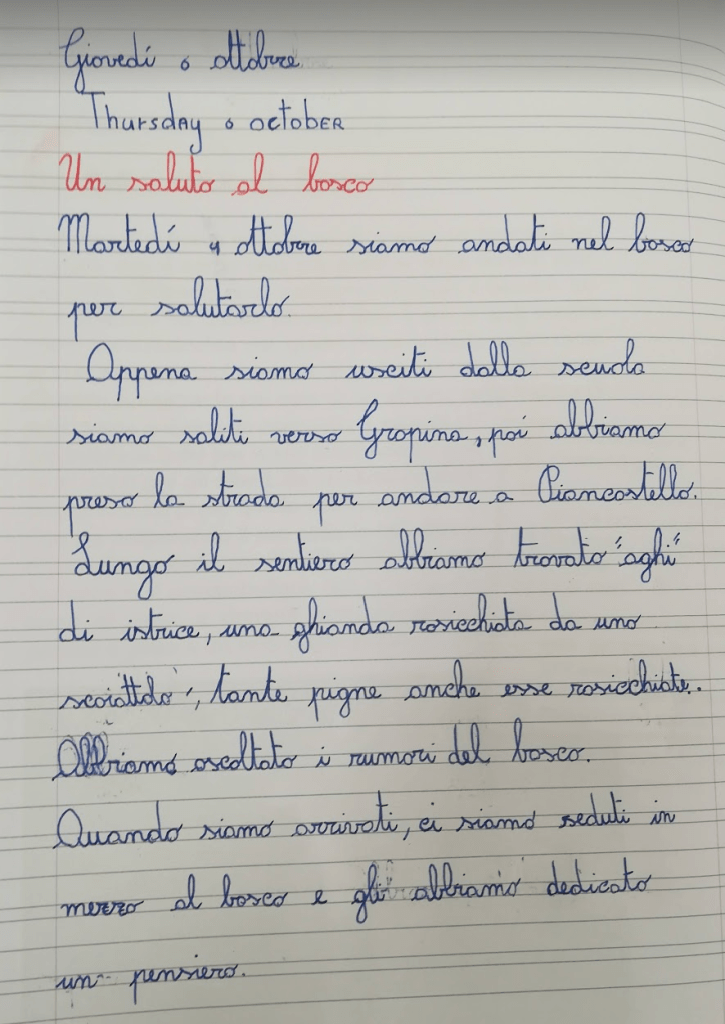 Giovedí 6 ottobre
Thursday 6 october
Un saluto al bosco
Martedí 4 ottobre siamo andati nel bosco
per salutarlo.
Appena siamo usciti dalla scuola
siamo saliti verso Gropina, poi abbiamo
preso la strada per andare a Piancastello.
Lungo il sentiero abbiamo trovato "aghi"
di istrice, una ghianda rosicchiata da uno
scoiattolo, tante pigne anche esse rosicchiate.
Abbiamo ascoltato i rumori del bosco.
Quando siamo arrivati, ci siamo seduti in
mezzo al bosco e gli abbiamo dedicato
un pensiero.